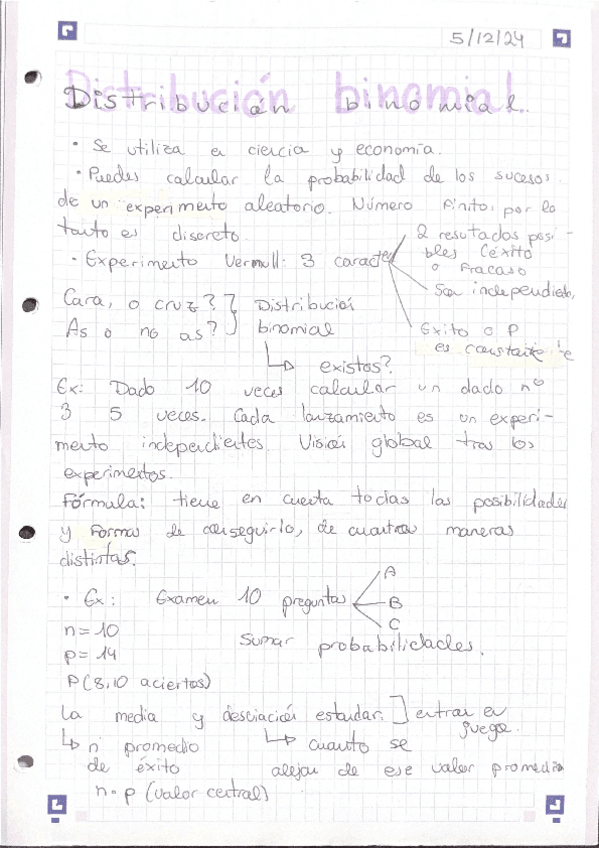 5/12/24
Distribución binomial.
· Se utiliza en ciencia y economía.
· Puedes calcular la probabilidad de los sucesos
de un experimento aleatorio. Número finito, por lo
tanto es discreto.
· Experimento Vermull: 3 caracte
2 resutados posi-
bles (éxito
o fracaso
Son independiente,
Exito o P
es constante
Cara, o cruz?
As o no as?
Distribución
binomial
↳ existos?
Ex: Dado 10 veces calcular un dado nº
3 5 veces. Cada lanzamiento es un experi-
mento independientes. Visión global tras los
experimentos.
Fórmula: tiene en cuenta todas las posibilidades
y formas de conseguirlo, de cuantas maneras
distintas.
· Ex: Examen 10 preguntas
A
B
C
n=10
p=14
P(8,10 aciertos)
Sumar probabilidades.
La media y desciación estandar. ] entran en
juego.
↳ n promedio
de éxito
n·p (valor central)
↳ cuanto se
alejan de ese valor promedio